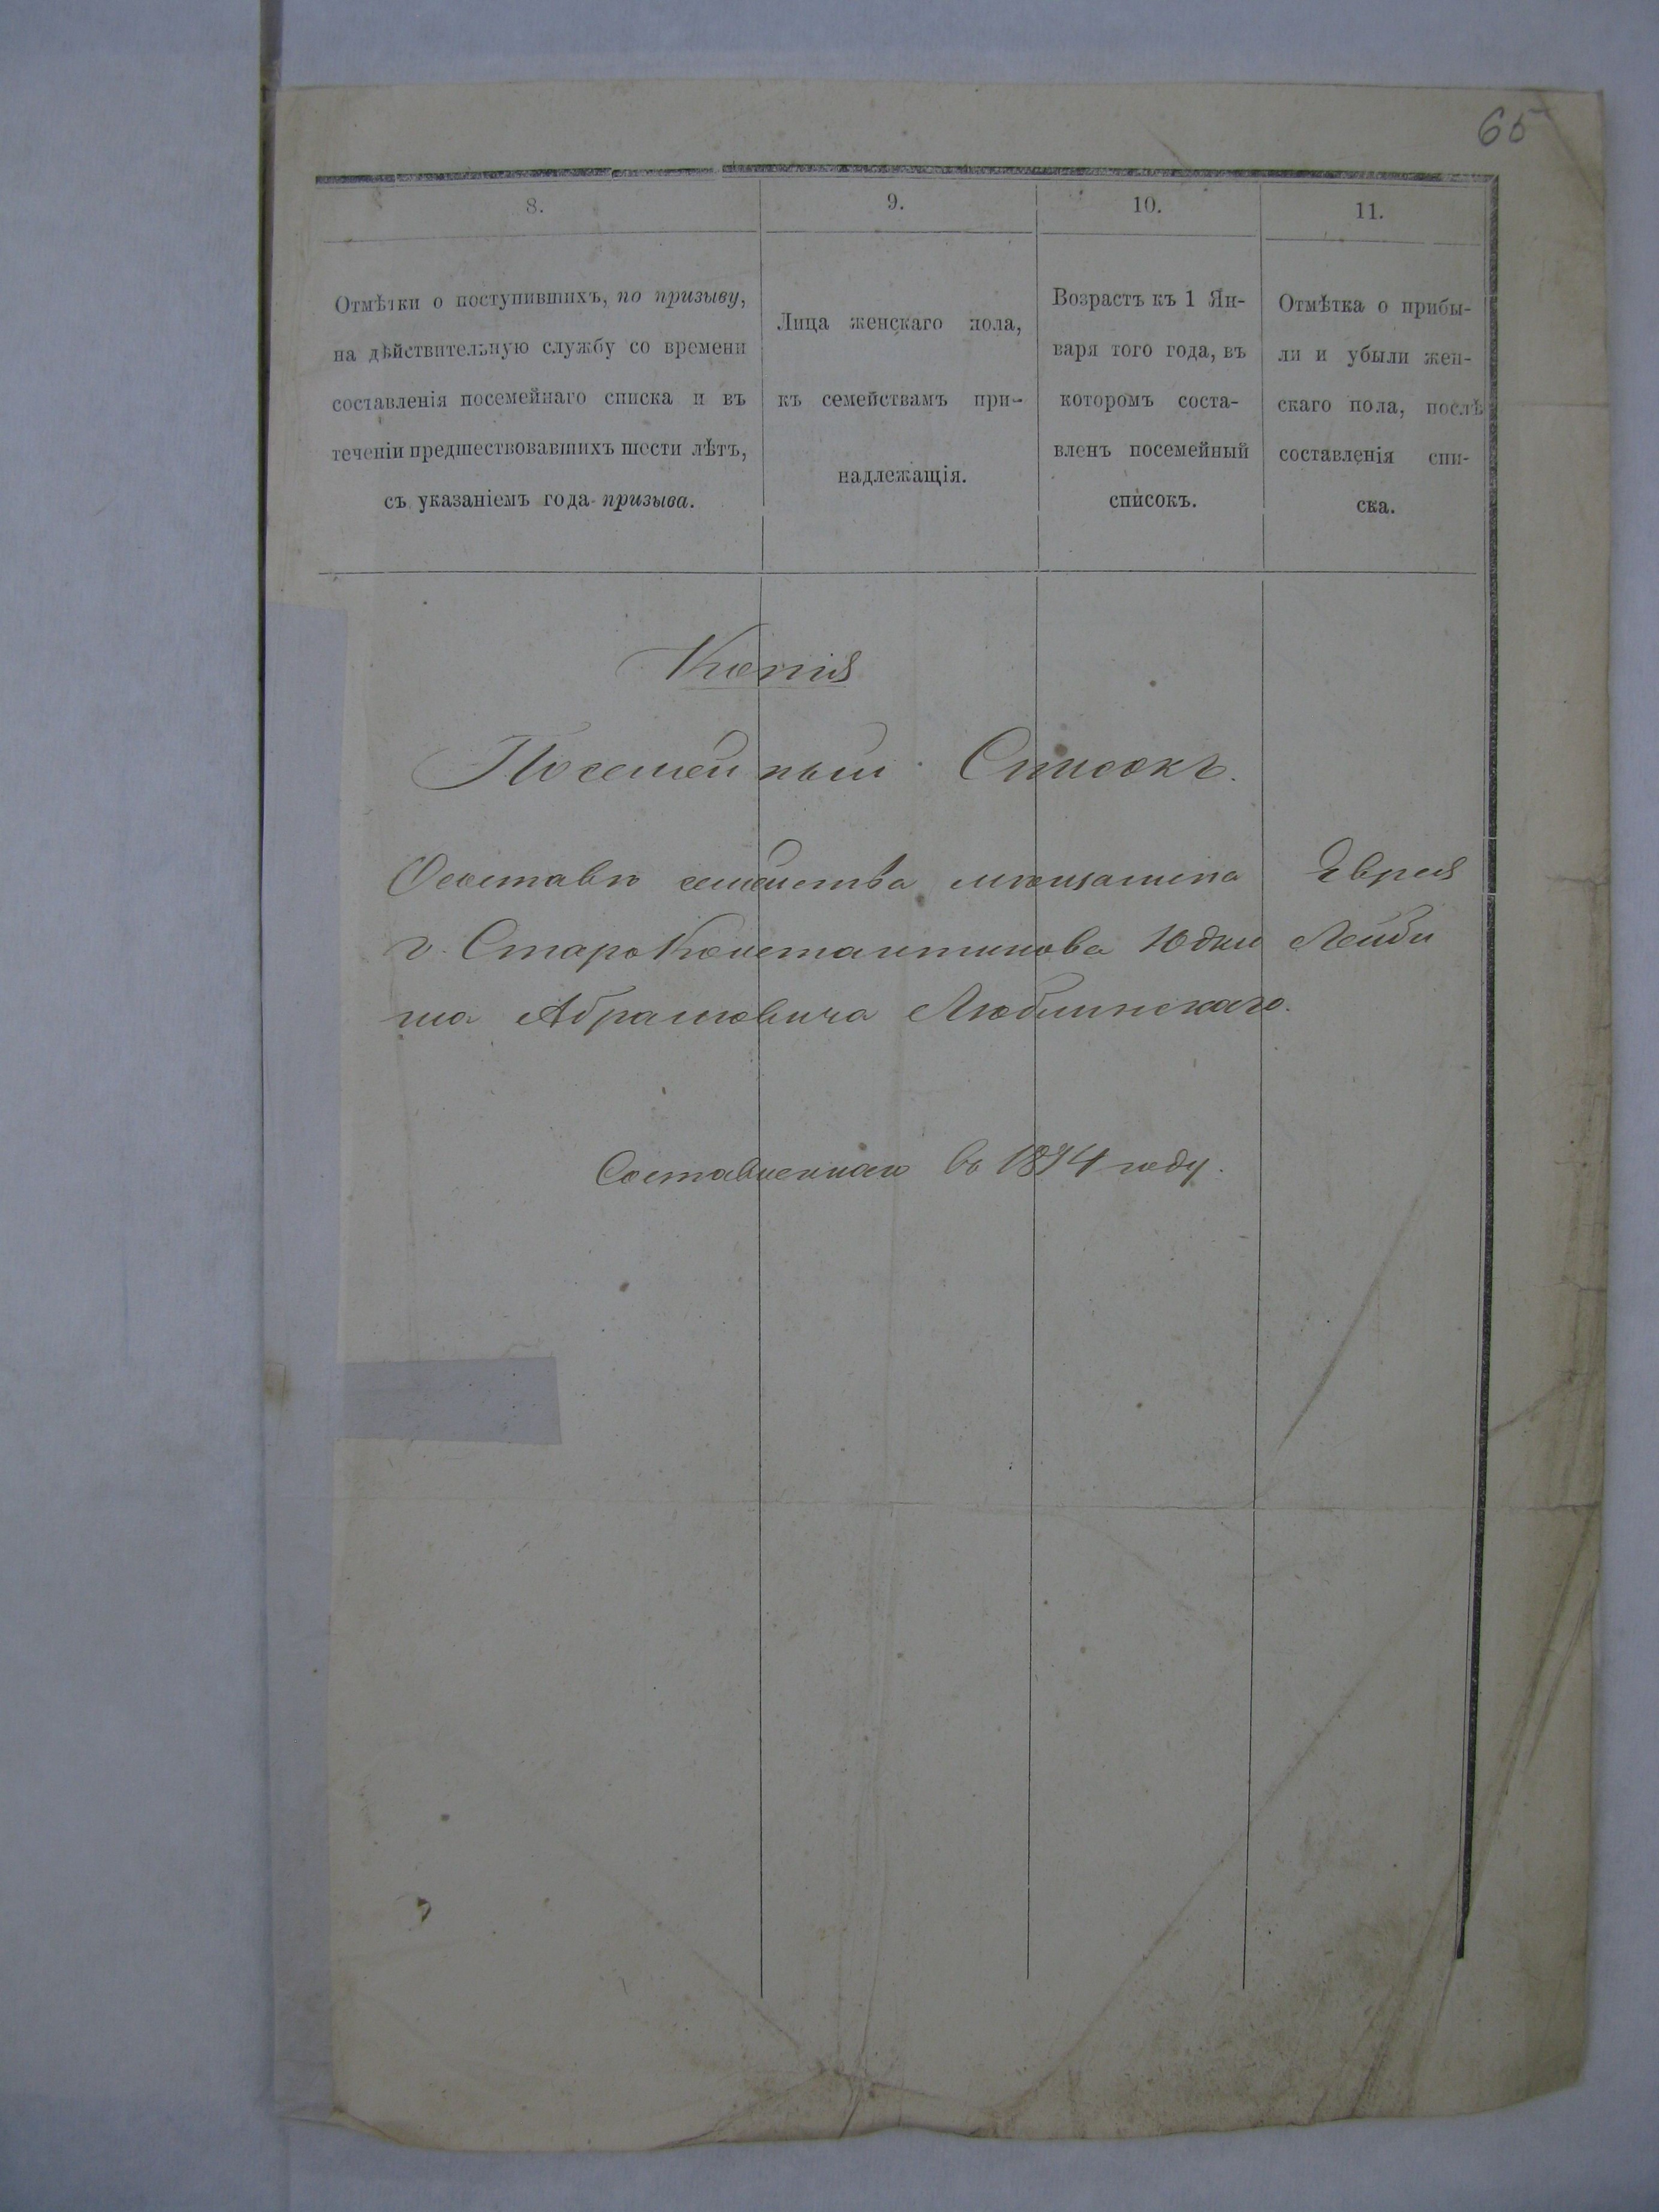 65
8.
9.
10.
11.
Отмѣтки о поступившихъ, по призыву,
на дѣйствительную службу со времени
составленія посемейнаго списка и въ
теченіи предшествовавшихъ шести лѣтъ,
съ указаніемъ года призыва.
Лица женскаго пола,
къ семействамъ при-
надлежащія.
Возрастъ къ 1 Ян-
варя того года, въ
которомъ соста-
вленъ посемейный
списокъ.
Отмѣтка о прибы-
ли и убыли жен-
скаго пола, послѣ
составленія спи-
ска.
Копія
Посемейный Списокъ.
О составѣ семейства мѣщанина Еврея
г. СтароКонстантинова Юдки Лейби
ша Абрамовича Люблинскаго.
Составленнаго въ 1874 году.